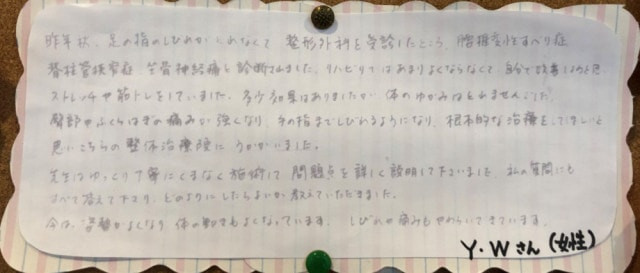 昨年秋、足の指のしびれがとれなくて 整形外科を受診したところ、腰椎変性すべり症
脊柱管狭窄症、坐骨神経痛と診断されました。リハビリではあまりよくならなくて 自分で改善
ストレッチや筋トレをしていました。多少効果はありましたが 体のゆがみはとれませんでした。
臀部やふくらはぎの痛みが強くなり、手の指までしびれるようになり、根本的な治療をして
思いこちらの整体治療院にうかがいました。
先生はゆっくり丁寧に 施術して 問題点を詳しく説明して下さいました 私の質問にも
すべて答えて下さり、どのようにしたらよいか教えていただきました。
今は 姿勢がよくなり 体の動きもよくなっています しびれや痛みもやわらいできています。
Y・Wさん(女性)